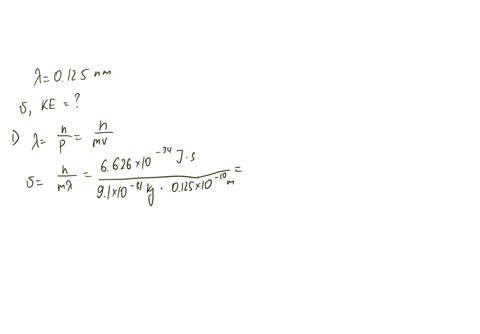 λ = 0.125 nm
υ, KE = ?
1) λ = h/p = h/mv
υ = h/mλ = 6.626×10⁻³⁴ J·s / 9.1×10⁻³¹ kg · 0.125×10⁻¹⁰ m =